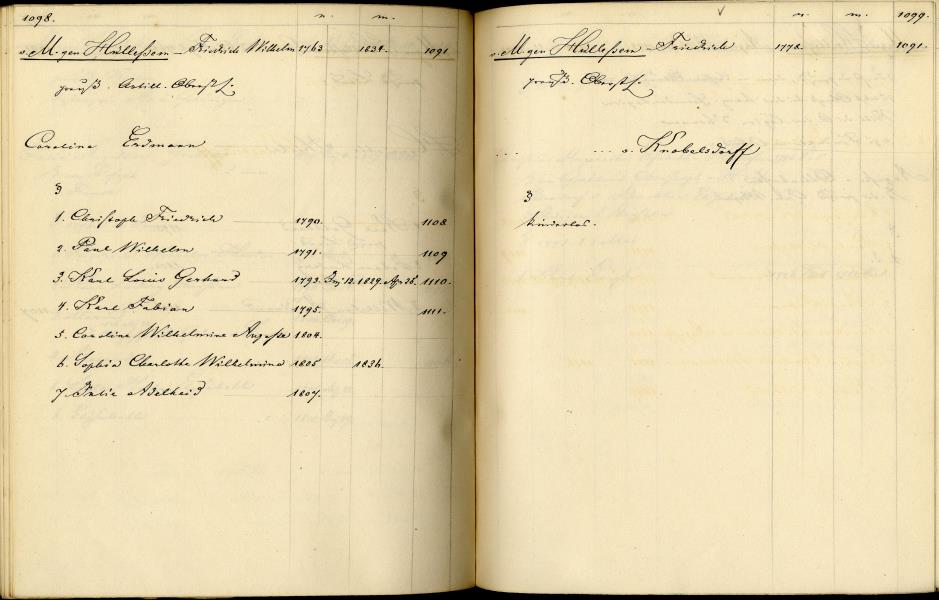 1098. n. m.
v. M. gen Hülleßem – Friedrich Wilhelm 1763 1834. 1091
preuß. Artill. Oberstl.
Caroline Erdmann
1. Christoph Friedrich 1790. 1108
2. Paul Wilhelm 1791. 1109
3. Karl Louis Gerhard 1793. 12. 1829. Apr 25. 1110.
4. Karl Fabian 1795. 1111.
5. Caroline Wilhelmine Auguste 1804.
6. Sophia Charlotte Wilhelmine 1805 1836.
7. Julie Adelheid 1807.
n. m. 1099.
v. M. gen Hülleßem – Friedrich 1772. 1091.
preuß. Oberstl.
... ... v. Knobelsdorff
kinderlos.